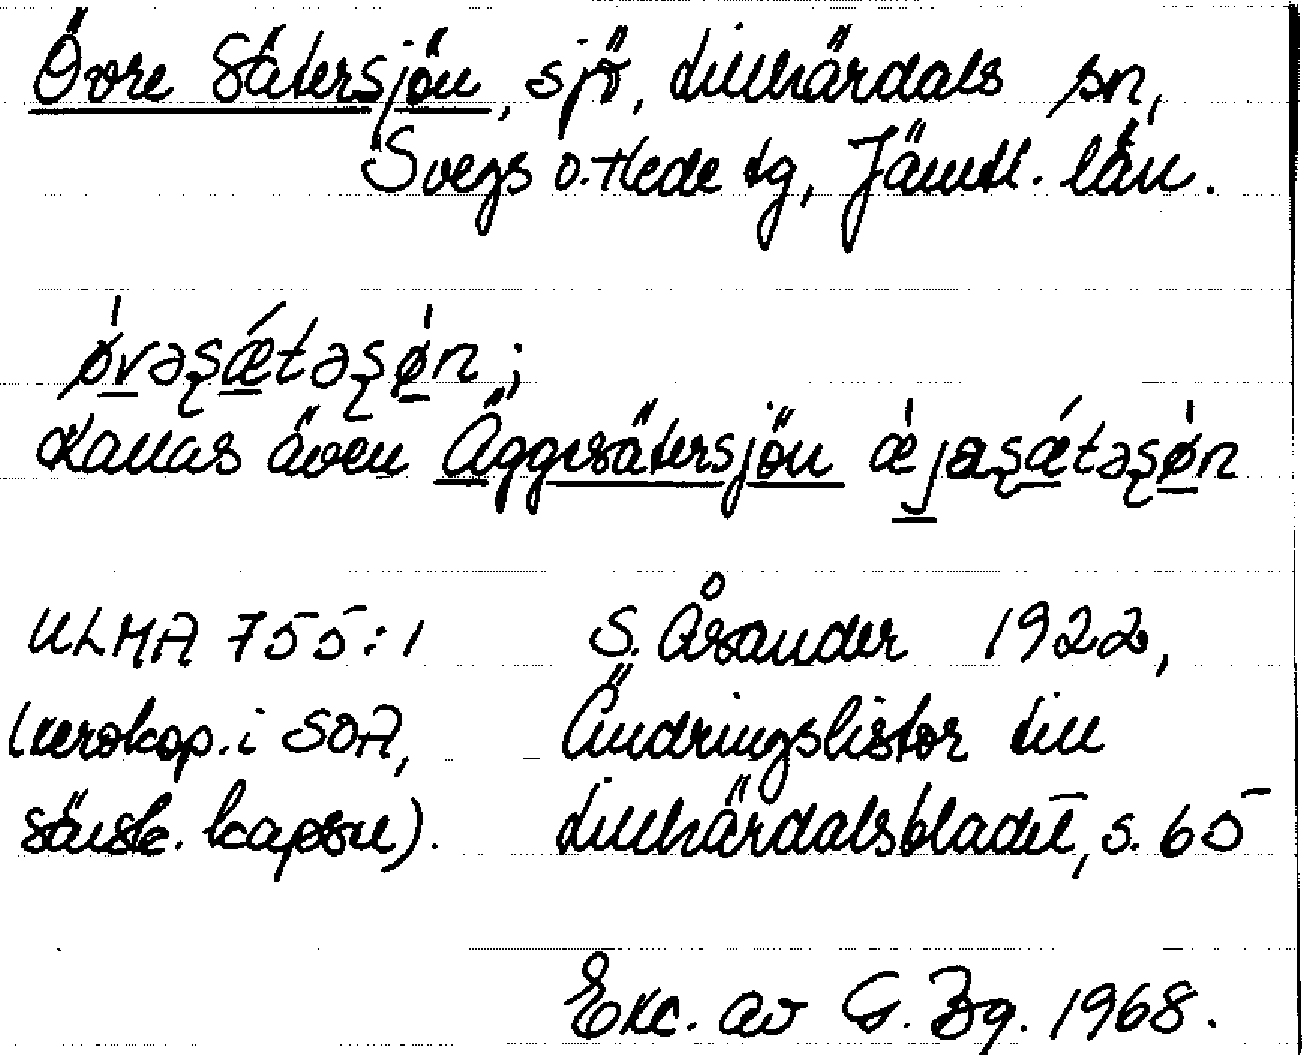 Övre Sätersjön, sjö, Lillhärdals sn,
Svegs o. Hede tg, Jämtl. län.
ǿvəʂǽtəʂøn;
Kallas även Äggesätersjön ǽjaʂǽtəʂøn
ULMA 755:1 S. Åsander 1922,
(xerokop. i SOA, Ändringslistor till
särsk. kapsel). Lillhärdalsbladet, s. 65
Exc. av G. Bg. 1968.